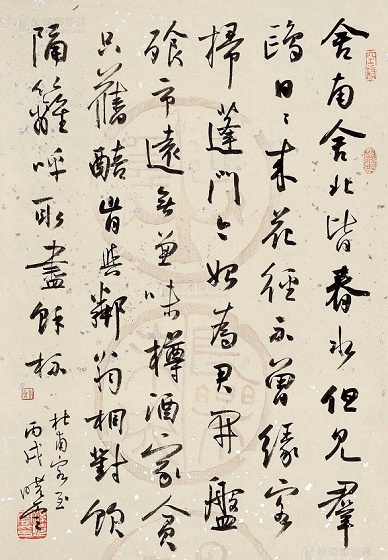 舍南舍北皆春水但見羣
鷗日々来花徑不曾緣客
掃蓬門今始為君開盤
飱市遠無兼味樽酒家貧
只舊醅肯與鄰翁相對飲
隔籬呼取盡餘杯
杜甫客至
丙戌